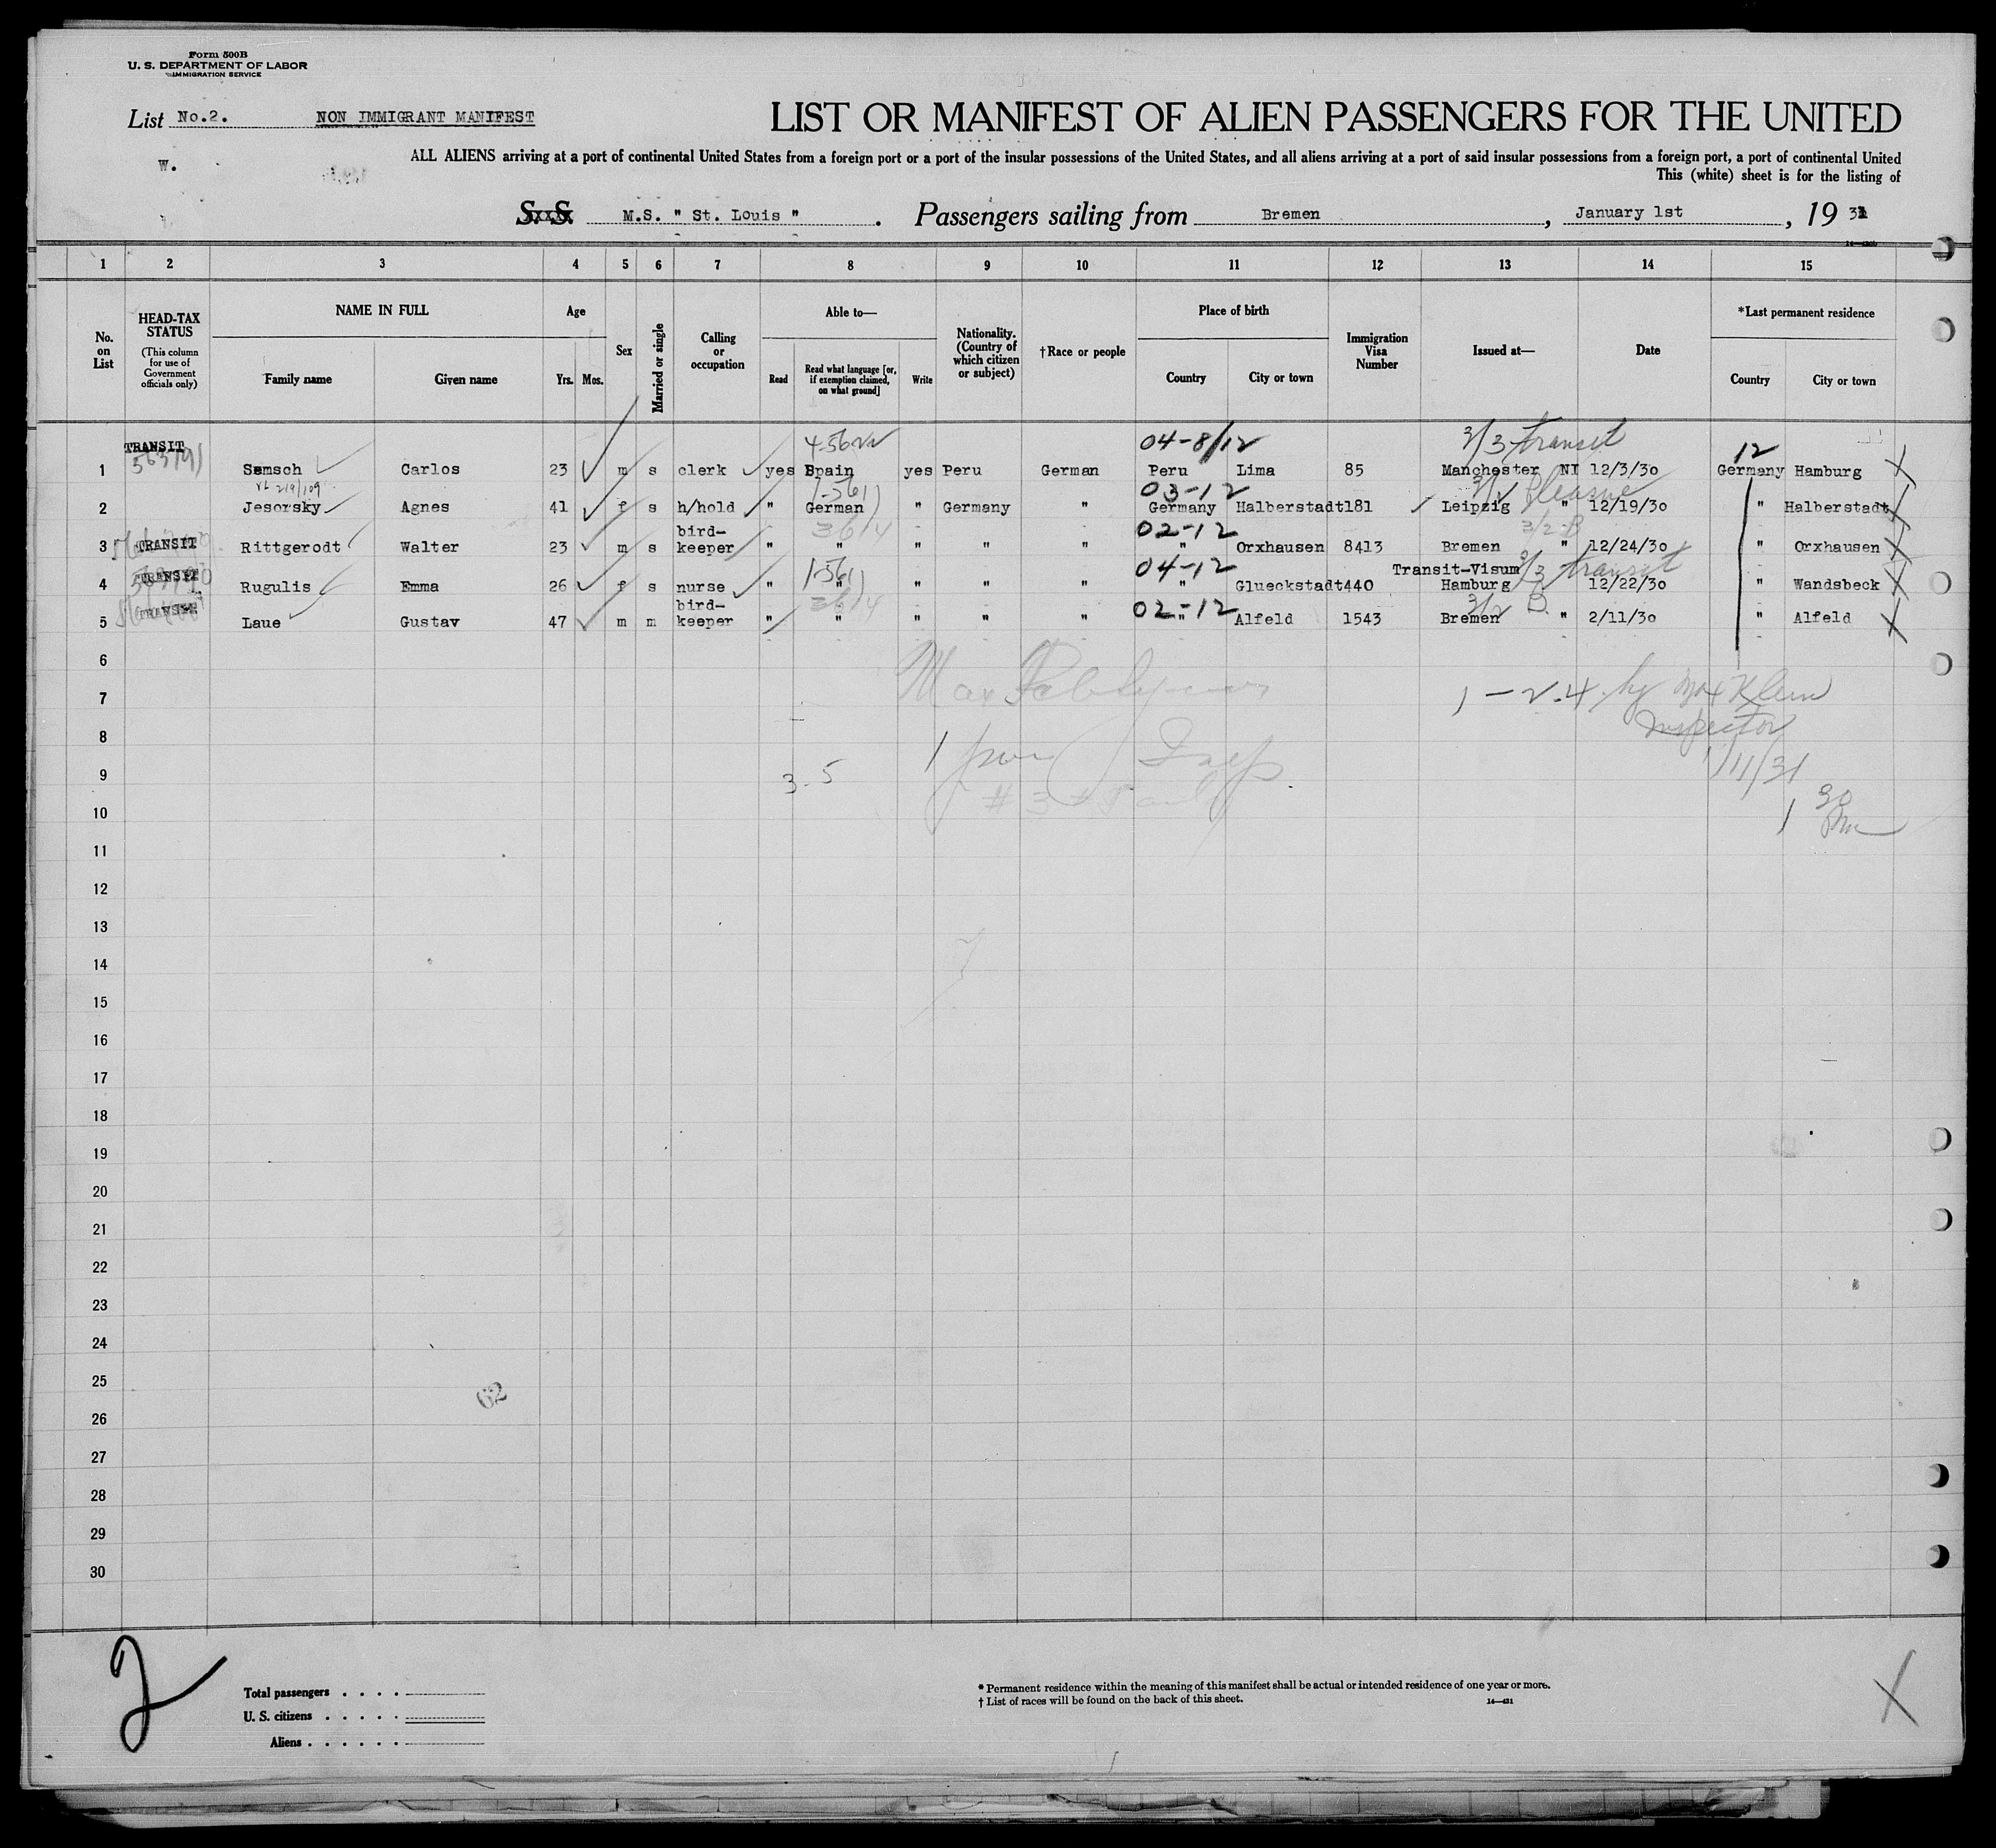 Form 500B
U. S. DEPARTMENT OF LABOR
IMMIGRATION SERVICE
List No.2. NON IMMIGRANT MANIFEST
LIST OR MANIFEST OF ALIEN PASSENGERS FOR THE UNITED
W.
ALL ALIENS arriving at a port of continental United States from a foreign port or a port of the insular possessions of the United States, and all aliens arriving at a port of said insular possessions from a foreign port, a port of continental United
This (white) sheet is for the listing of
S. S. M.S. " St. Louis ". Passengers sailing from Bremen, January 1st, 19 31
1 2 3 4 5 6 7 8 9 10 11 12 13 14 15
No. on List
HEAD-TAX STATUS
(This column for use of Government officials only)
NAME IN FULL
Family name Given name
Age
Yrs. Mos.
Sex
Married or single
Calling or occupation
Able to—
Read
Read what language [or, if exemption claimed, on what ground]
Write
Nationality. (Country of which citizen or subject)
†Race or people
Place of birth
Country City or town
Immigration Visa Number
Issued at—
Date
*Last permanent residence
Country City or town
TRANSIT 04-8/12 3/3 transit 12
1 Samsch Carlos 23 m s clerk yes Spain yes Peru German Peru Lima 85 Manchester NI 12/3/30 Germany Hamburg
03-12 Pleasure
2 Jesorsky Agnes 41 f s h/hold " German " Germany " Germany Halberstadt 181 Leipzig " 12/19/30 " Halberstadt
bird- 02-12 3/2-B
3 TRANSIT Rittgerodt Walter 23 m s keeper " " " " " " Orxhausen 8413 Bremen " 12/24/30 " Orxhausen
04-12 Transit-Visum 3/3 transit
4 TRANSIT Rugulis Emma 26 f s nurse " " " " " " Glueckstadt 440 Hamburg 12/22/30 " Wandsbeck
bird- 02-12 3/2 B.
5 TRANSIT Laue Gustav 47 m m keeper " " " " " " Alfeld 1543 Bremen " 2/11/30 " Alfeld
6
7 Max 1-2.4. by Max Klein
Inspector
8
9 3-5 Insp. 1/11/31
10 1 30 Pm
11
12
13
14
15
16
17
18
19
20
21
22
23
24
25
62
26
27
28
29
30
2
Total passengers . . . .
U. S. citizens . . . . .
Aliens . . . . . .
* Permanent residence within the meaning of this manifest shall be actual or intended residence of one year or more.
† List of races will be found on the back of this sheet. 14—431